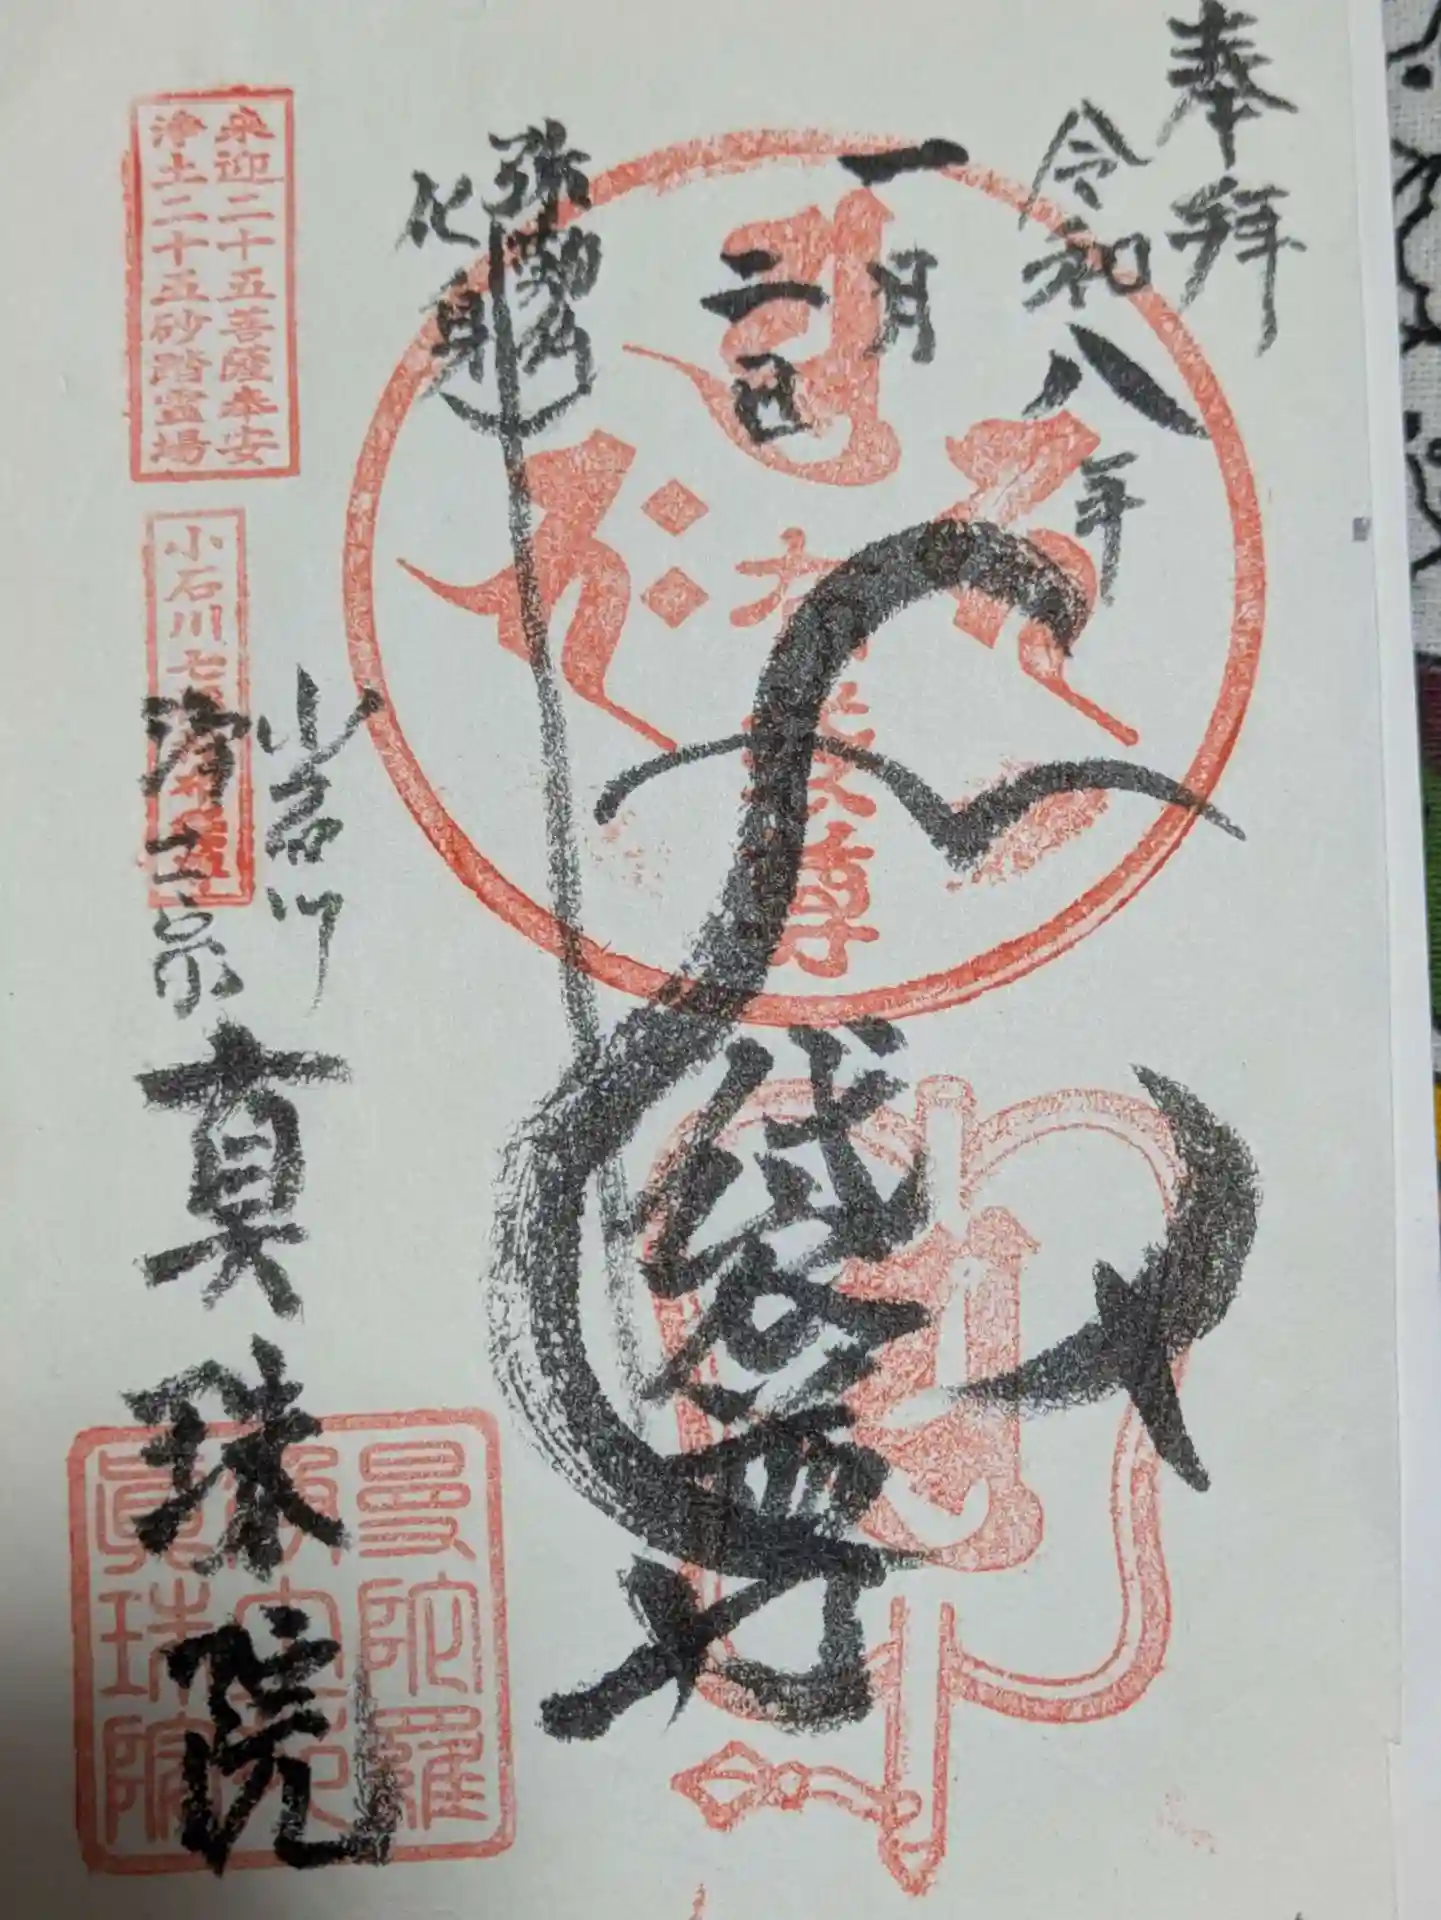 奉拝
令和八年
一月
二日
弥勒
化身
袋尊
小石川
浄土宗
真珠院
来迎二十五菩薩奉安
浄土二十五砂踏霊場
小石川七
布袋尊
曼陀羅
眞珠院